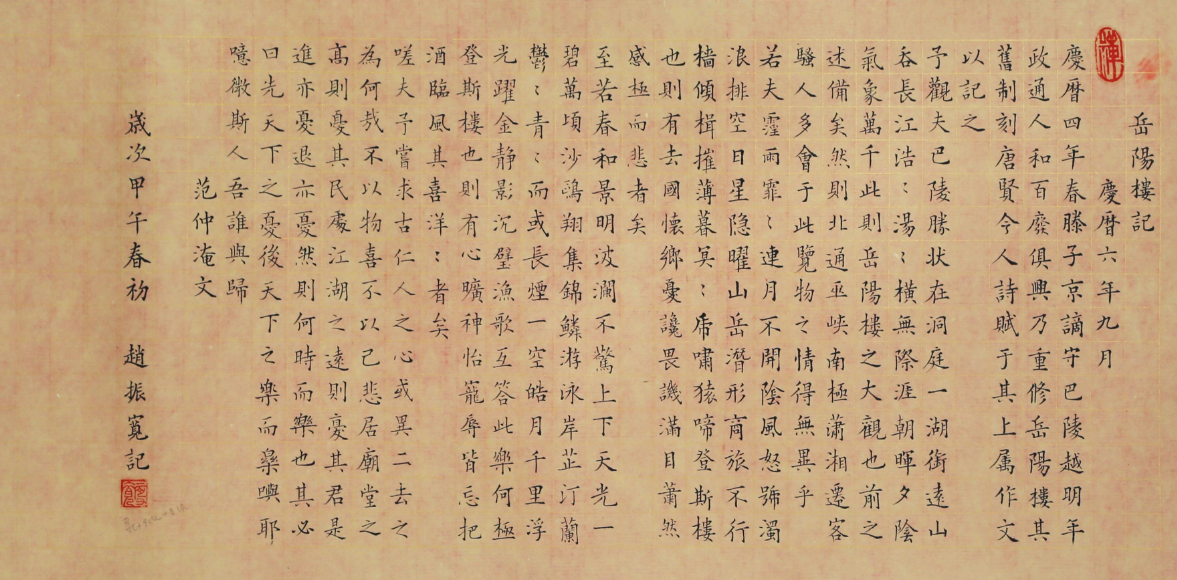 岳陽樓記
慶曆六年九月
慶曆四年春滕子京謫守巴陵越明年
政通人和百廢俱興乃重修岳陽樓其
舊制刻唐賢今人詩賦于其上属作文
以記之
予觀夫巴陵勝状在洞庭一湖銜遠山
吞長江浩〻湯〻橫無際涯朝暉夕陰
氣象萬千此則岳陽樓之大觀也前之
述備矣然則北通巫峽南極瀟湘遷客
騷人多會于此覽物之情得無異乎
若夫霪雨霏〻連月不開陰風怒號濁
浪排空日星隐曜山岳潛形商旅不行
檣傾楫摧薄暮冥〻虎嘯猿啼登斯樓
也則有去國懷鄉憂讒畏譏滿目蕭然
感極而悲者矣
至若春和景明波瀾不驚上下天光一
碧萬頃沙鷗翔集錦鱗游泳岸芷汀蘭
鬱〻青〻而或長煙一空皓月千里浮
光躍金静影沉璧漁歌互答此樂何極
登斯樓也則有心曠神怡寵辱皆忘把
酒臨風其喜洋〻者矣
嗟夫予嘗求古仁人之心或異二去之
為何哉不以物喜不以己悲居廟堂之
高則憂其民處江湖之遠則憂其君是
進亦憂退亦憂然則何時而樂也其必
曰先天下之憂後天下之樂而樂歟耶
噫微斯人吾誰與歸
范仲淹文
歲次甲午春初 趙振寬記